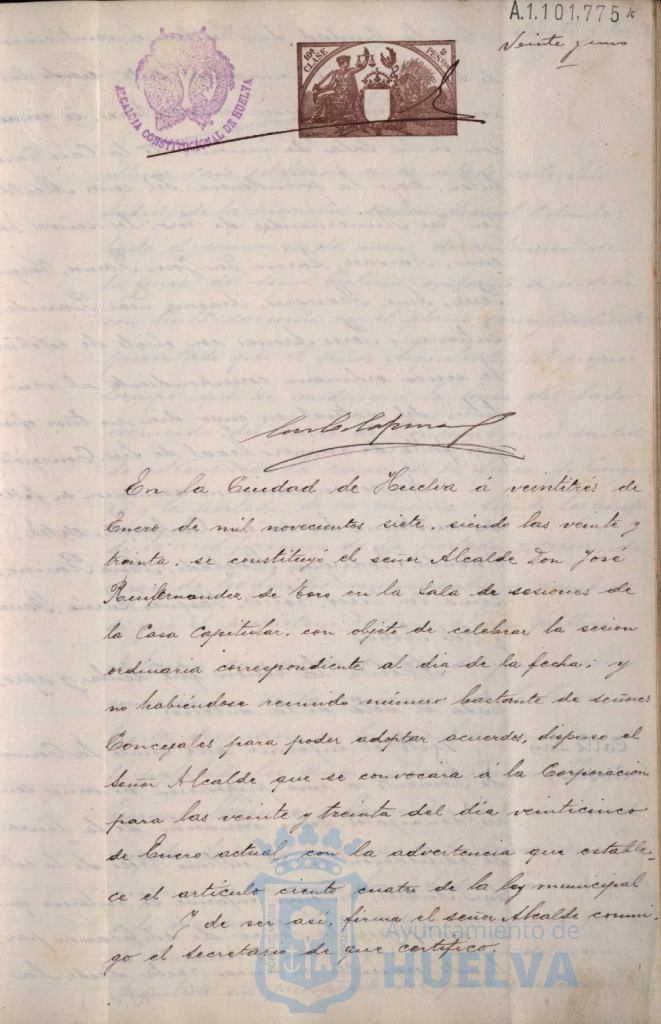 A.1.101,775*
Veinte y uno
ALCALDIA CONSTITUCIONAL DE HUELVA
10ª CLASE
2 PESETAS
En la Ciudad de Huelva á veintitrés de
Enero de mil novecientos siete, siendo las veinte y
treinta, se constituyó el señor Alcalde Don José
de Toro en la Sala de sesiones de
la Casa Capitular, con objeto de celebrar la sesion
ordinaria correspondiente al dia de la fecha; y
no habiéndose reunido número bastante de señores
Concejales para poder adoptar acuerdos, dispuso el
Señor Alcalde que se convocara á la Corporación
para las veinte y treinta del día veinticinco
de Enero actual, con la advertencia que estable-
ce el artículo ciento cuatro de la ley municipal
Y de ser así, firma el señor Alcalde conmi-
go el secretario de que certifico.
Ayuntamiento de
HUELVA